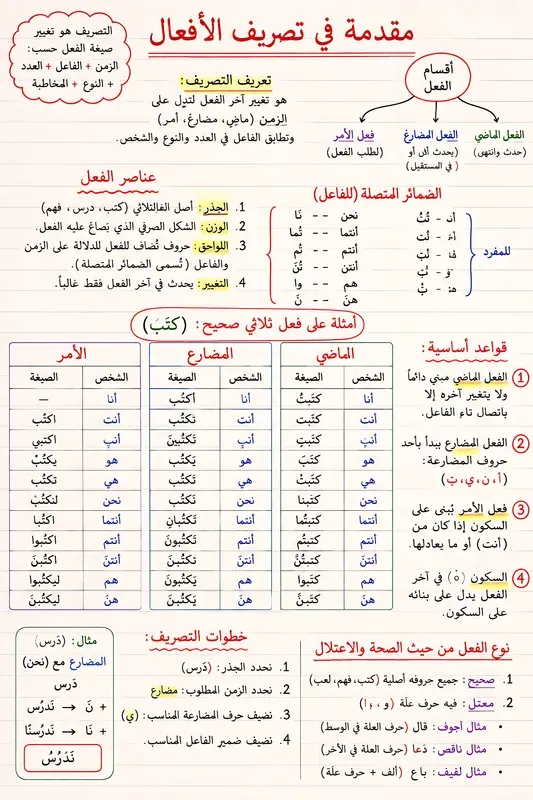 مقدمة في تصريف الأفعال
التصريف هو تغيير
صيغة الفعل حسب:
الزمن + الفاعل + العدد
+ النوع + المخاطبة
تعريف التصريف:
هو تغيير آخر الفعل لتدل على
الزمن (ماضٍ، مضارع، أمر)
وتطابق الفاعل في العدد والنوع والشخص.
أقسام
الفعل
الفعل الماضي
(حدث وانتهى)
الفعل المضارع
(يحدث
في المستقبل)
فعل الأمر
(لطلب الفعل)
عناصر الفعل
1. الجذر: أصل (كتب، درس، فهم)
2. الوزن: الشكل الصرفي الذي يُصاغ عليه الفعل.
3. اللواحق: حروف تُضاف للفعل للدلالة على الزمن
والفاعل (تُسمى الضمائر المتصلة).
4. التغيير: يحدث في آخر الفعل فقط غالباً.
الضمائر المتصلة (للفاعل)
نحن -- نَا
أنتما -- تُما
أنتم -- تُم
أنتن -- تُنَّ
هم -- وا
هنَ -- نَ
للمفرد
أمثلة على فعل ثلاثي صحيح: (كتَبَ)
الماضي
الشخص الصيغة
أنا كتَبتُ
أنت كتَبت
أنتِ كتَبتِ
هو كتَبَ
هي كتَبَتْ
نحن كتَبنا
أنتما كتبتُما
أنتم كتبتُم
أنتنَ كتبتُنَّ
هم كتَبوا
هنَ كتَبنَ
المضارع
الشخص الصيغة
أنا أكتُب
أنت تكتُب
أنتِ تَكتُبينَ
هو يَكتُب
هي تَكتُب
نحن نَكتُب
أنتما تَكتُبانِ
أنتم تَكتُبونَ
أنتنَ تَكتُبنَ
هم يَكتُبونَ
هنَ يَكتُبنَ
الأمر
الشخص الصيغة
أنا —
أنت اكتُب
أنتِ اكتبي
هو يكتُبْ
هي تكتُب
نحن لنكتُبْ
أنتما اكتُبا
أنتم اكتُبوا
أنتنَ اكتُبنَ
هم ليكتُبوا
هنَ ليكتُبنَ
قواعد أساسية:
1 الفعل الماضي مبني دائماً
ولا يتغير آخره إلا
باتصال تاء الفاعل.
2 الفعل المضارع يبدأ بأحد
حروف المضارعة:
(أ، ن، ي، ت)
3 فعل الأمر يُبنى على
السكون إذا كان من
(أنت) أو ما يعادلها.
4 السكون (ْ) في آخر
الفعل يدل على بنائه
على السكون.
نوع الفعل من حيث الصحة والاعتلال
1. صحيح: جميع حروفه أصلية (كتب، فهم، لعب)
2. معتل: فيه حرف علّة
• مثال أجوف: قال (حرف العلة في الوسط)
• مثال ناقص: دَعا (حرف العلة في الآخر)
• مثال لفيف: باع (ألف + حرف علّة)
خطوات التصريف:
1. نحدد الجذر: (دَرس)
2. نحدد الزمن المطلوب: مضارع
3. نضيف حرف المضارعة المناسب: (ي)
4. نضيف ضمير الفاعل المناسب.
مثال: (دَرس)
المضارع مع (نحن)
دَرس
+ نَ → نَدرُس
+ نَا → نَدرُسنًا
نَدَرُسُ